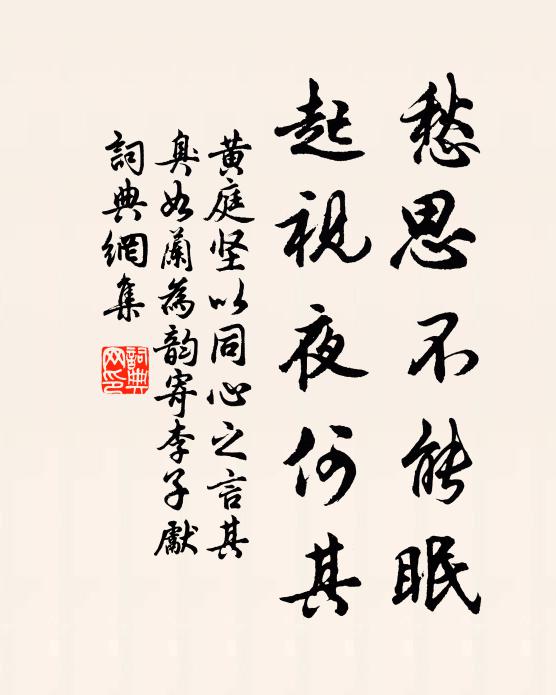 愁思不能眠
起視夜何其
黄庭坚以同心之言其
臭如蘭為韵寄李子獻
詞典網集
詞典網印